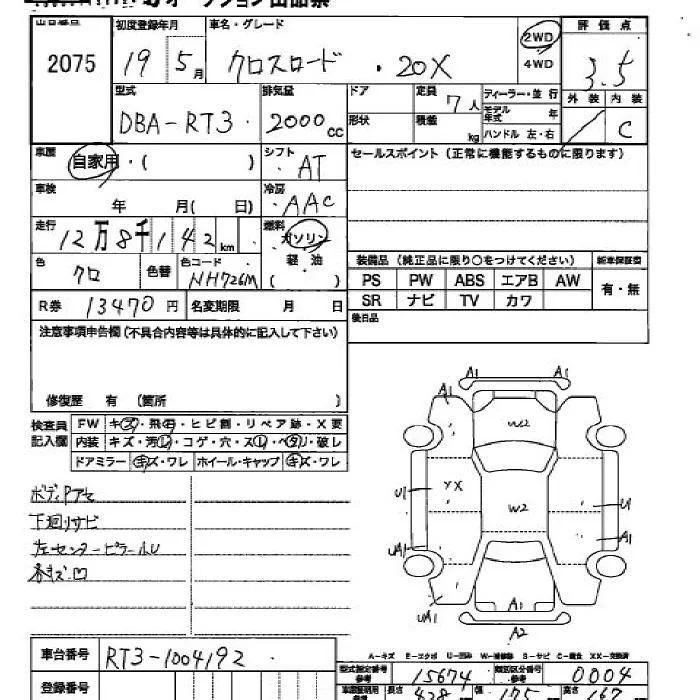 オークション出品票
出品番号 初度登録年月 車名・グレード 2WD 評価点
2075 19年5月 クロスロード・20X 4WD 3.5
型式 排気量 ドア 定員 7人 ディーラー・並行 外装 内装
DBA-RT3 2000cc 形状 積載 kg モデル年式 年 C
ハンドル 左・右
車歴 自家用・( ) シフト AT セールスポイント(正常に機能するものに限ります)
車検 年 月( 日) 冷房 AAC
走行 12万8千142km 燃料 ガソリン 軽油 ( )
装備品(純正品に限り○をつけてください) 新車保証書
色 クロ 色替 色コード NH726M PS PW ABS エアB AW 有・無
R券 13470円 名変期限 月 日 SR ナビ TV カワ
後日品
注意事項申告欄(不具合内容等は具体的に記入して下さい)
修復歴 有 (箇所 )
検査員記入欄 FW キズ・飛石・ヒビ割・リペア跡・X要
内装 キズ・汚レ・コゲ・穴・スレ・ヘタリ・破レ
ドアミラー キズ・ワレ ホイール・キャップ キズ・ワレ
A1 A1
A1 A1
W2
ボディPアセ
U1 YX W2 U1
下回リサビ
左センターピラーU
UA1 A1
各キズ凹
UA1 A1
A2
A-キズ E-エクボ U-凹み W-補修跡 S-サビ C-腐食 XX-交換済
車台番号 RT3-1004192
型式指定番号 参考 15674 類別区分番号 参考 0004
登録番号
長さ 428 幅 175 高さ 167